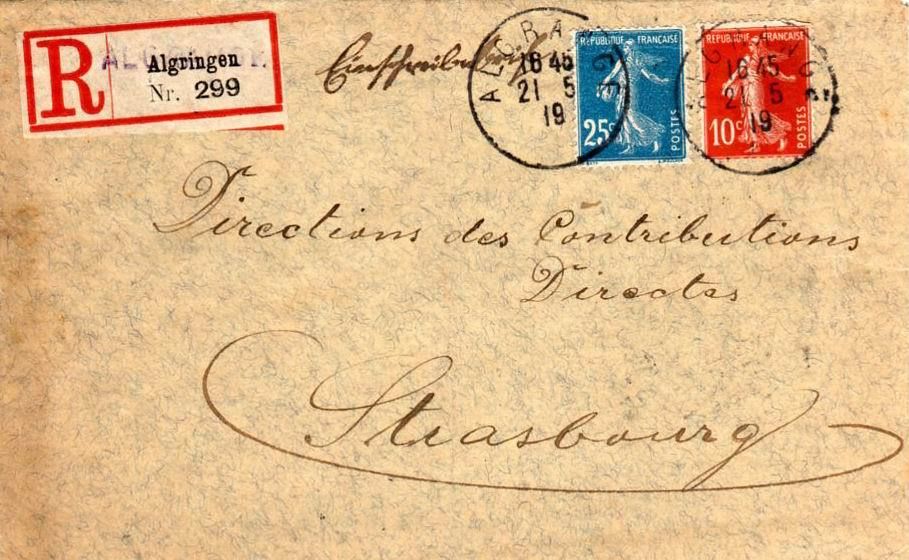 R
Algringen
Nr. 299
Einschreiben
16 45
21 5
19
REPUBLIQUE FRANÇAISE
25c
POSTES
16 45
21 5
19
REPUBLIQUE FRANÇAISE
10c
POSTES
Directions des Contributions
Directes
Strasbourg